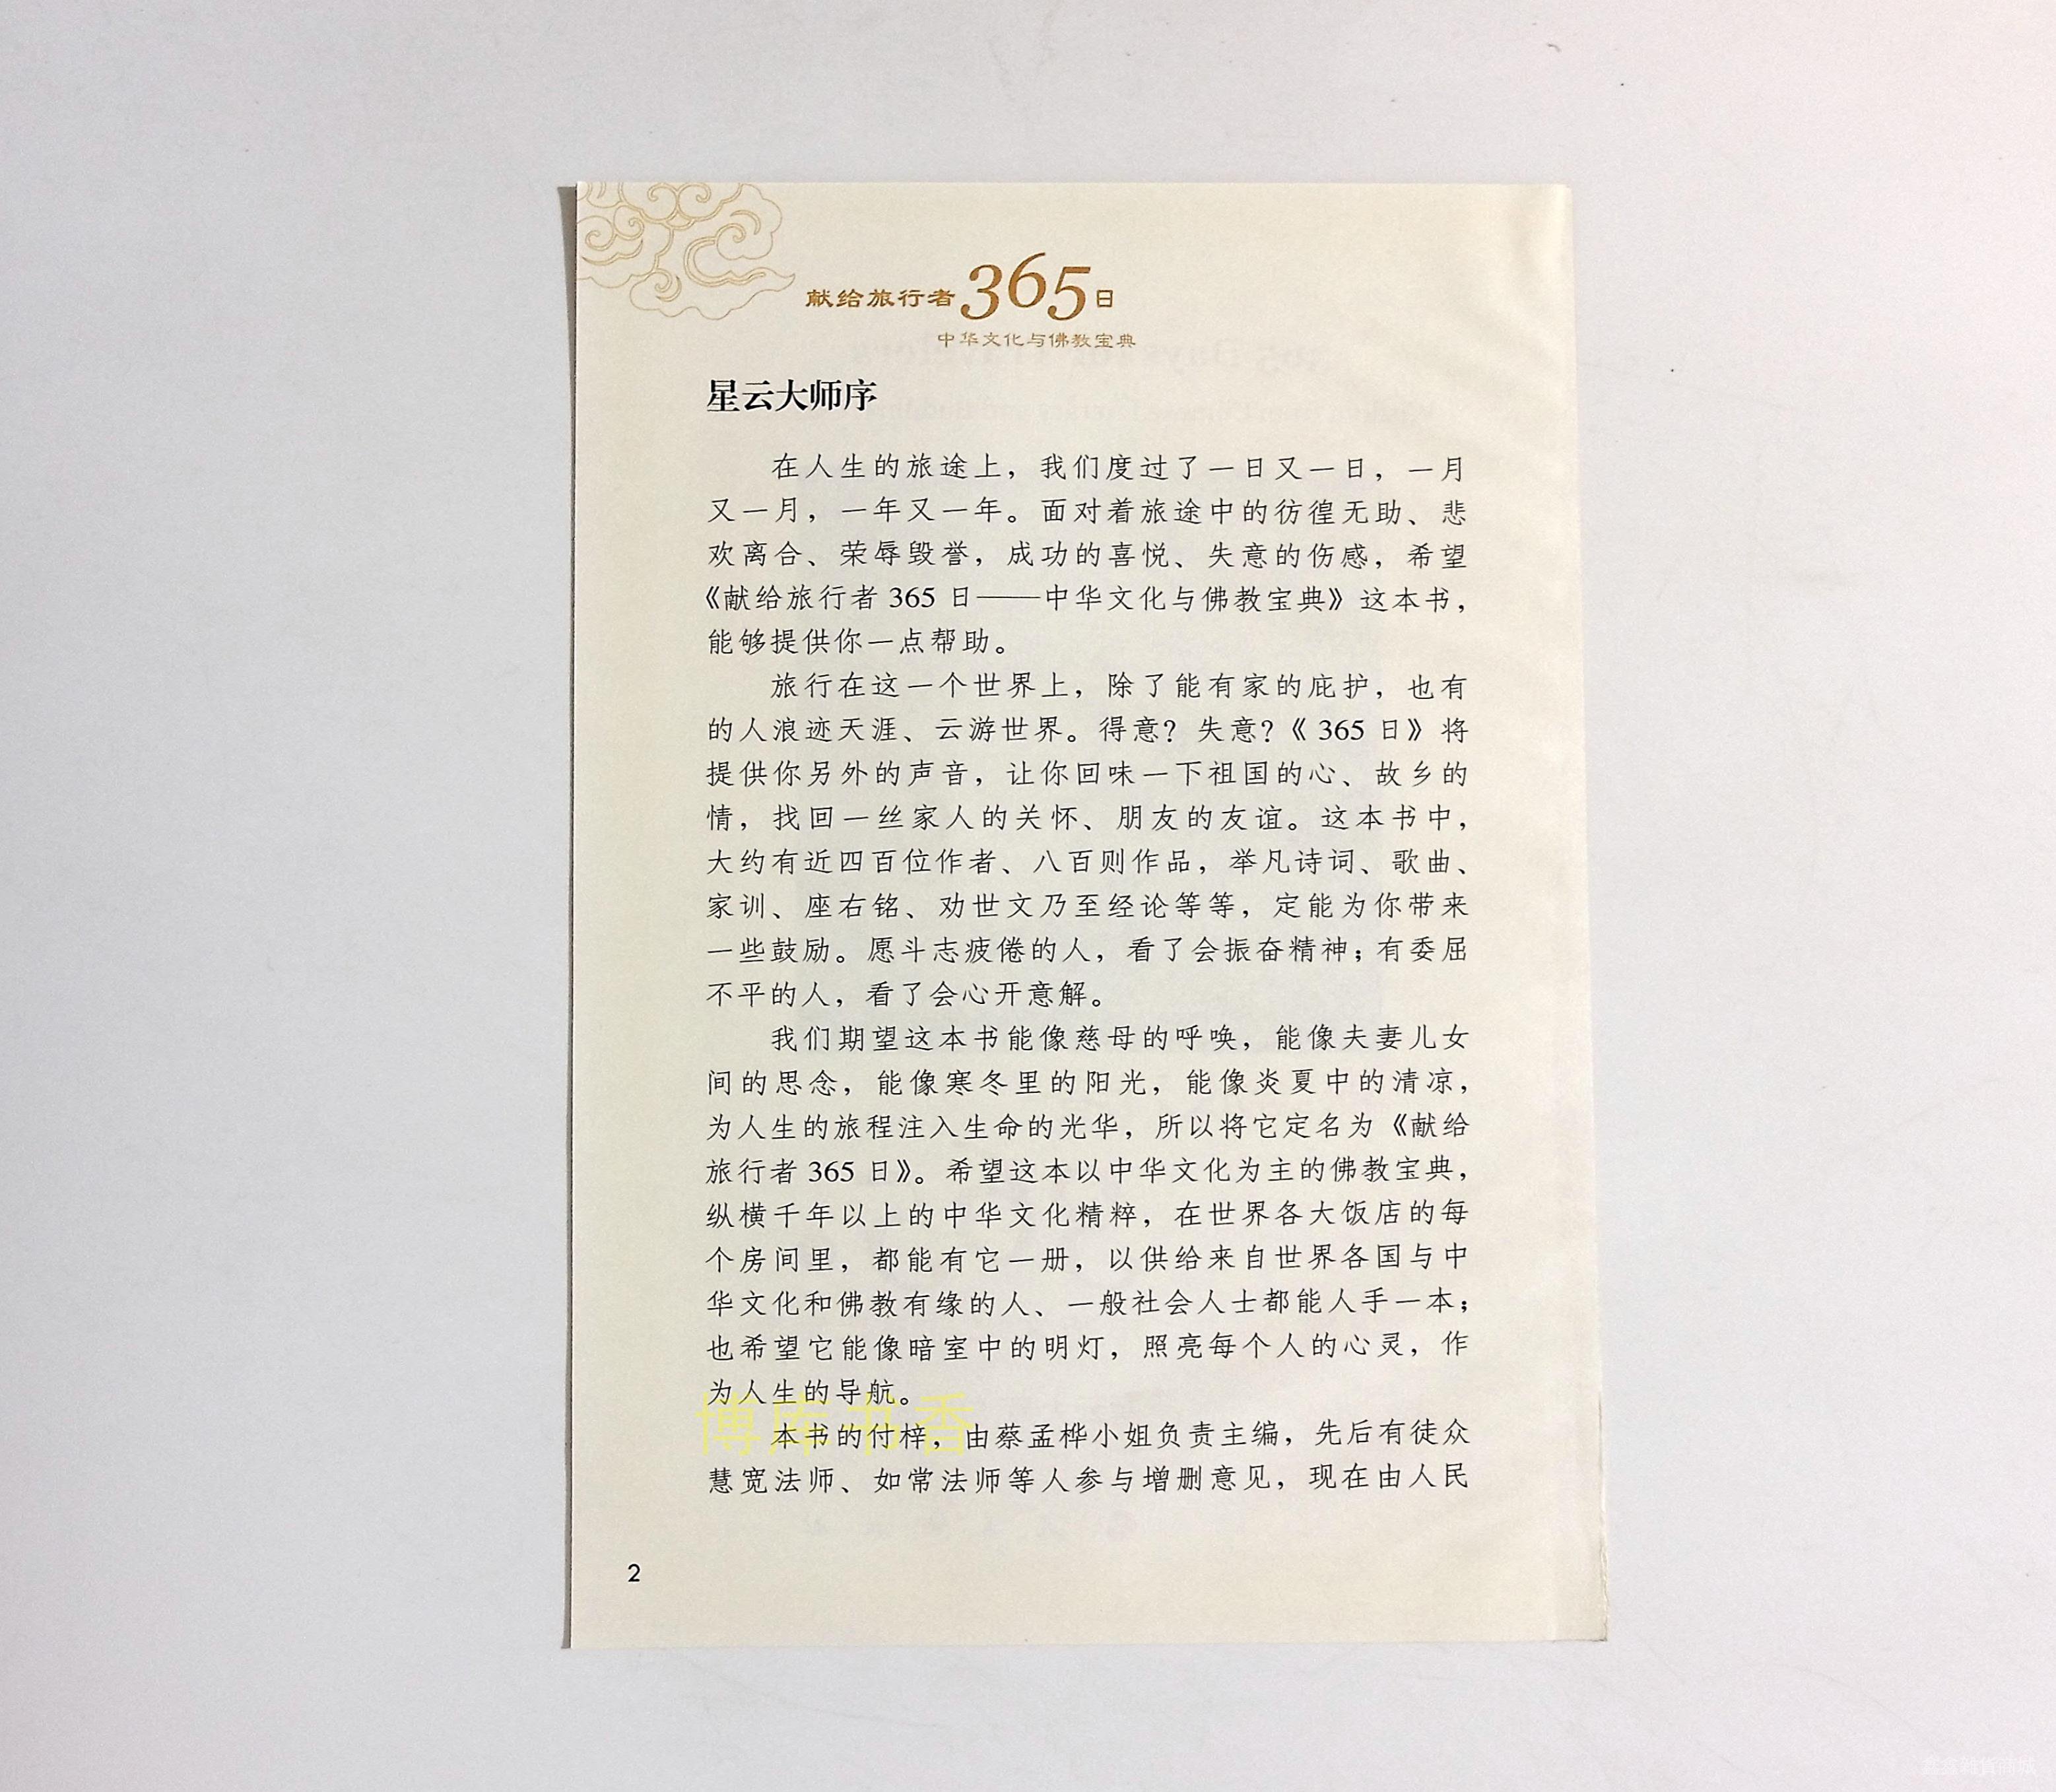 献给旅行者365日
中华文化与佛教宝典
星云大师序
在人生的旅途上，我们度过了一日又一日，一月
又一月，一年又一年。面对着旅途中的彷徨无助、悲
欢离合、荣辱毁誉，成功的喜悦、失意的伤感，希望
《献给旅行者 365 日——中华文化与佛教宝典》这本书，
能够提供你一点帮助。
旅行在这一个世界上，除了能有家的庇护，也有
的人浪迹天涯、云游世界。得意？失意？《365 日》将
提供你另外的声音，让你回味一下祖国的心、故乡的
情，找回一丝家人的关怀、朋友的友谊。这本书中，
大约有近四百位作者、八百则作品，举凡诗词、歌曲、
家训、座右铭、劝世文乃至经论等等，定能为你带来
一些鼓励。愿斗志疲倦的人，看了会振奋精神；有委屈
不平的人，看了会心开意解。
我们期望这本书能像慈母的呼唤，能像夫妻儿女
间的思念，能像寒冬里的阳光，能像炎夏中的清凉，
为人生的旅程注入生命的光华，所以将它定名为《献给
旅行者 365 日》。希望这本以中华文化为主的佛教宝典，
纵横千年以上的中华文化精粹，在世界各大饭店的每
个房间里，都能有它一册，以供给来自世界各国与中
华文化和佛教有缘的人、一般社会人士都能人手一本；
也希望它能像暗室中的明灯，照亮每个人的心灵，作
为人生的导航。
博库书香
本书的付梓，由蔡孟桦小姐负责主编，先后有徒众
慧宽法师、如常法师等人参与增删意见，现在由人民
2